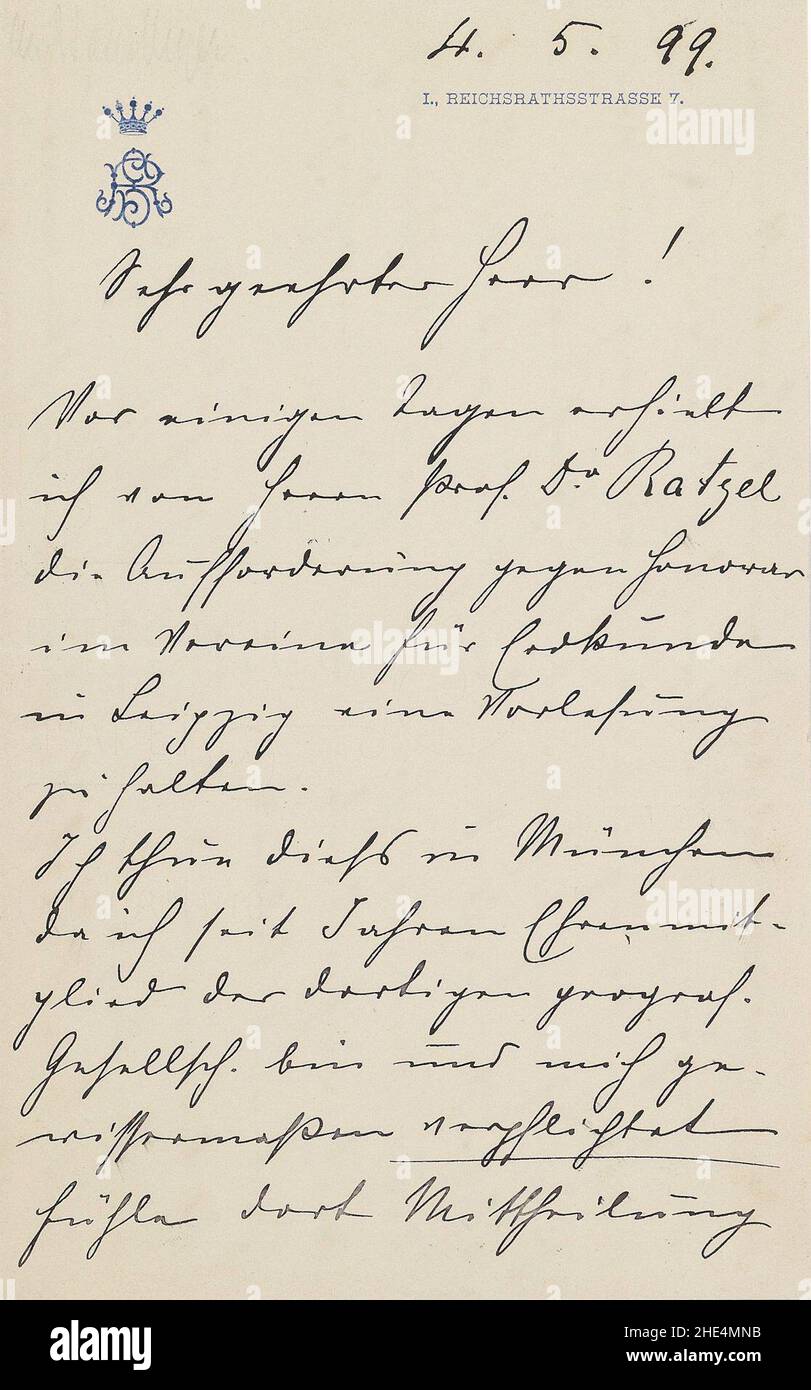 4. 5. 99.
I., REICHSRATHSSTRASSE 7.
Sehr geehrter Herr!
Vor einigen Tagen erhielt
ich von Herrn Prof. Dr Ratzel
die Aufforderung gegen Honorar
im Vereine für Erdkunde
in Leipzig eine Vorlesung
zu halten.
Ich thue diess in München
da ich seit Jahren Ehrenmit-
glied der dortigen geograf.
Gesellsch. bin und mich ge-
wissermaßen verpflichtet
fühle dort Mittheilung
alamy
Image ID: 2HE4MNB
www.alamy.com